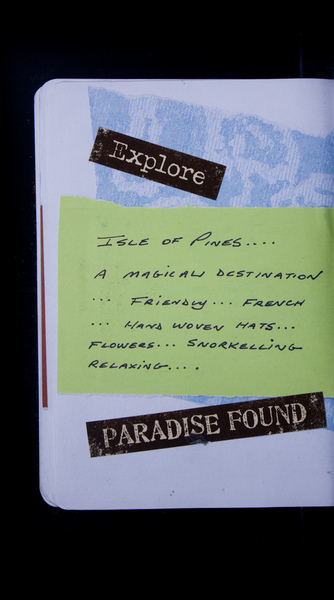 Explore
ISLE OF PINES....
A MAGICAL DESTINATION
... FRIENDLY... FRENCH
... HAND WOVEN HATS...
FLOWERS... SNORKELLING
RELAXING....
PARADISE FOUND